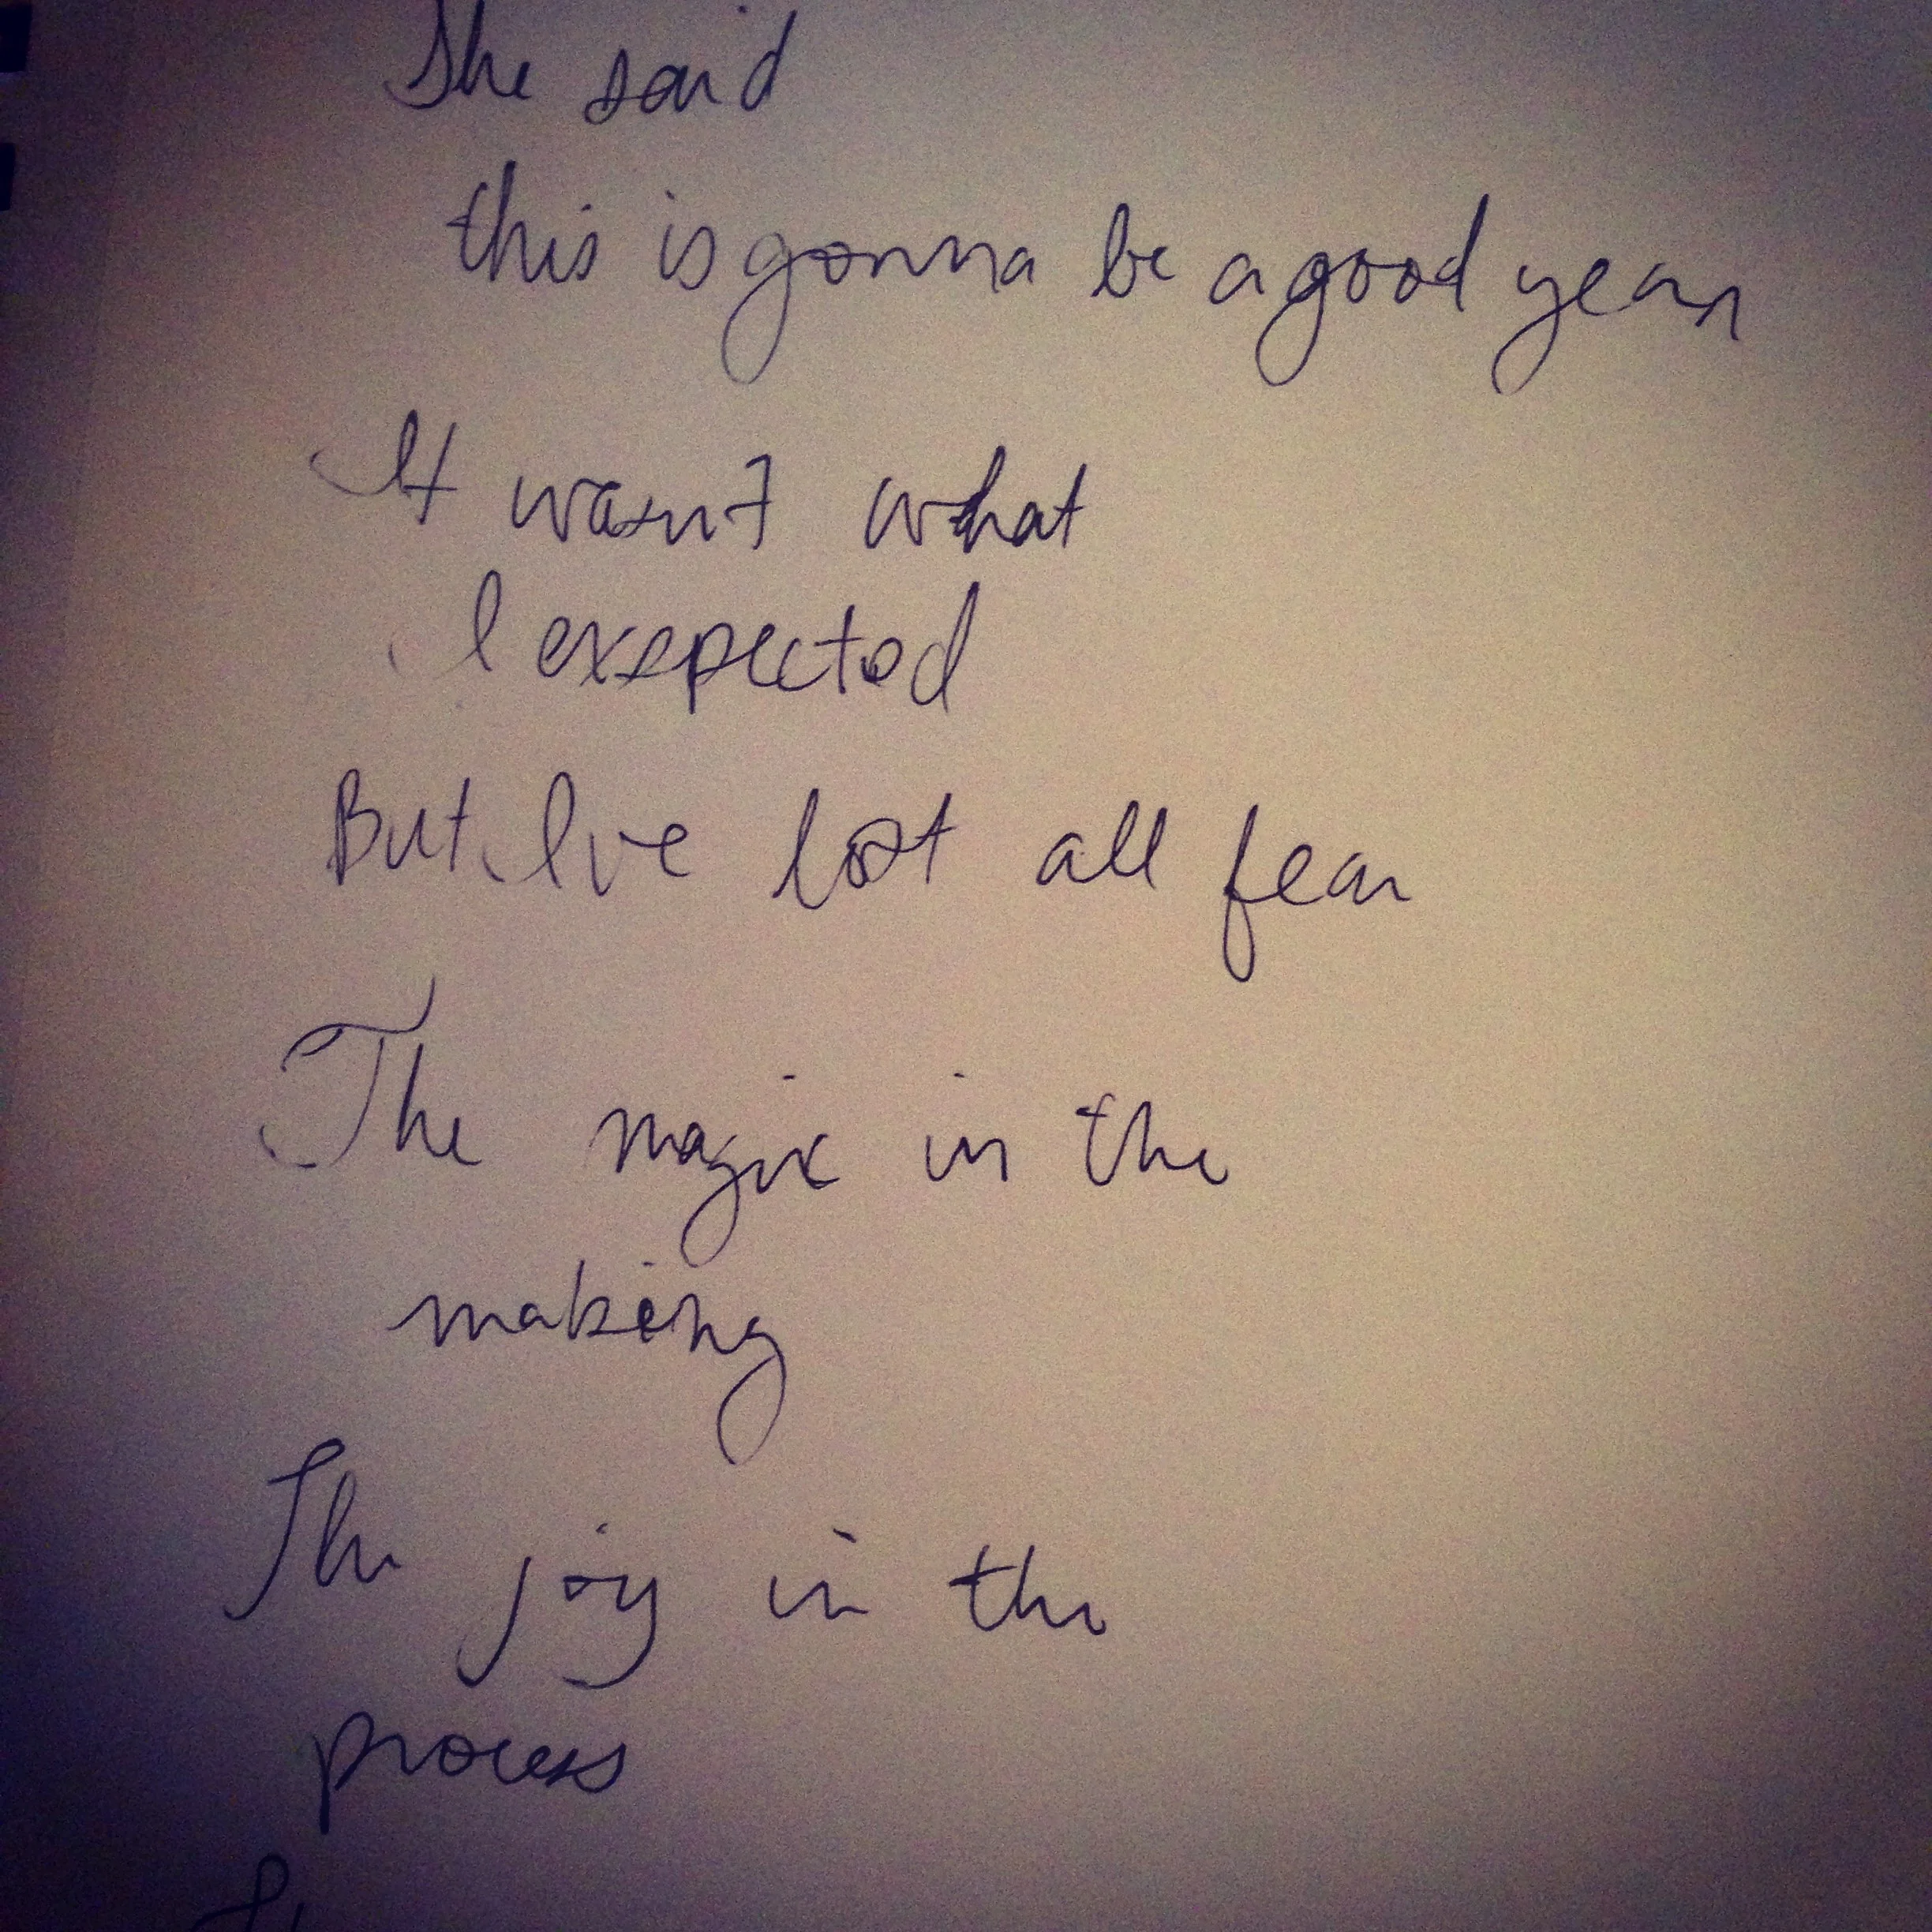 She said
this is gonna be a good year
It wasnt what
I exspected
But Ive lost all fear
The magic in the
making
The joy in the
process